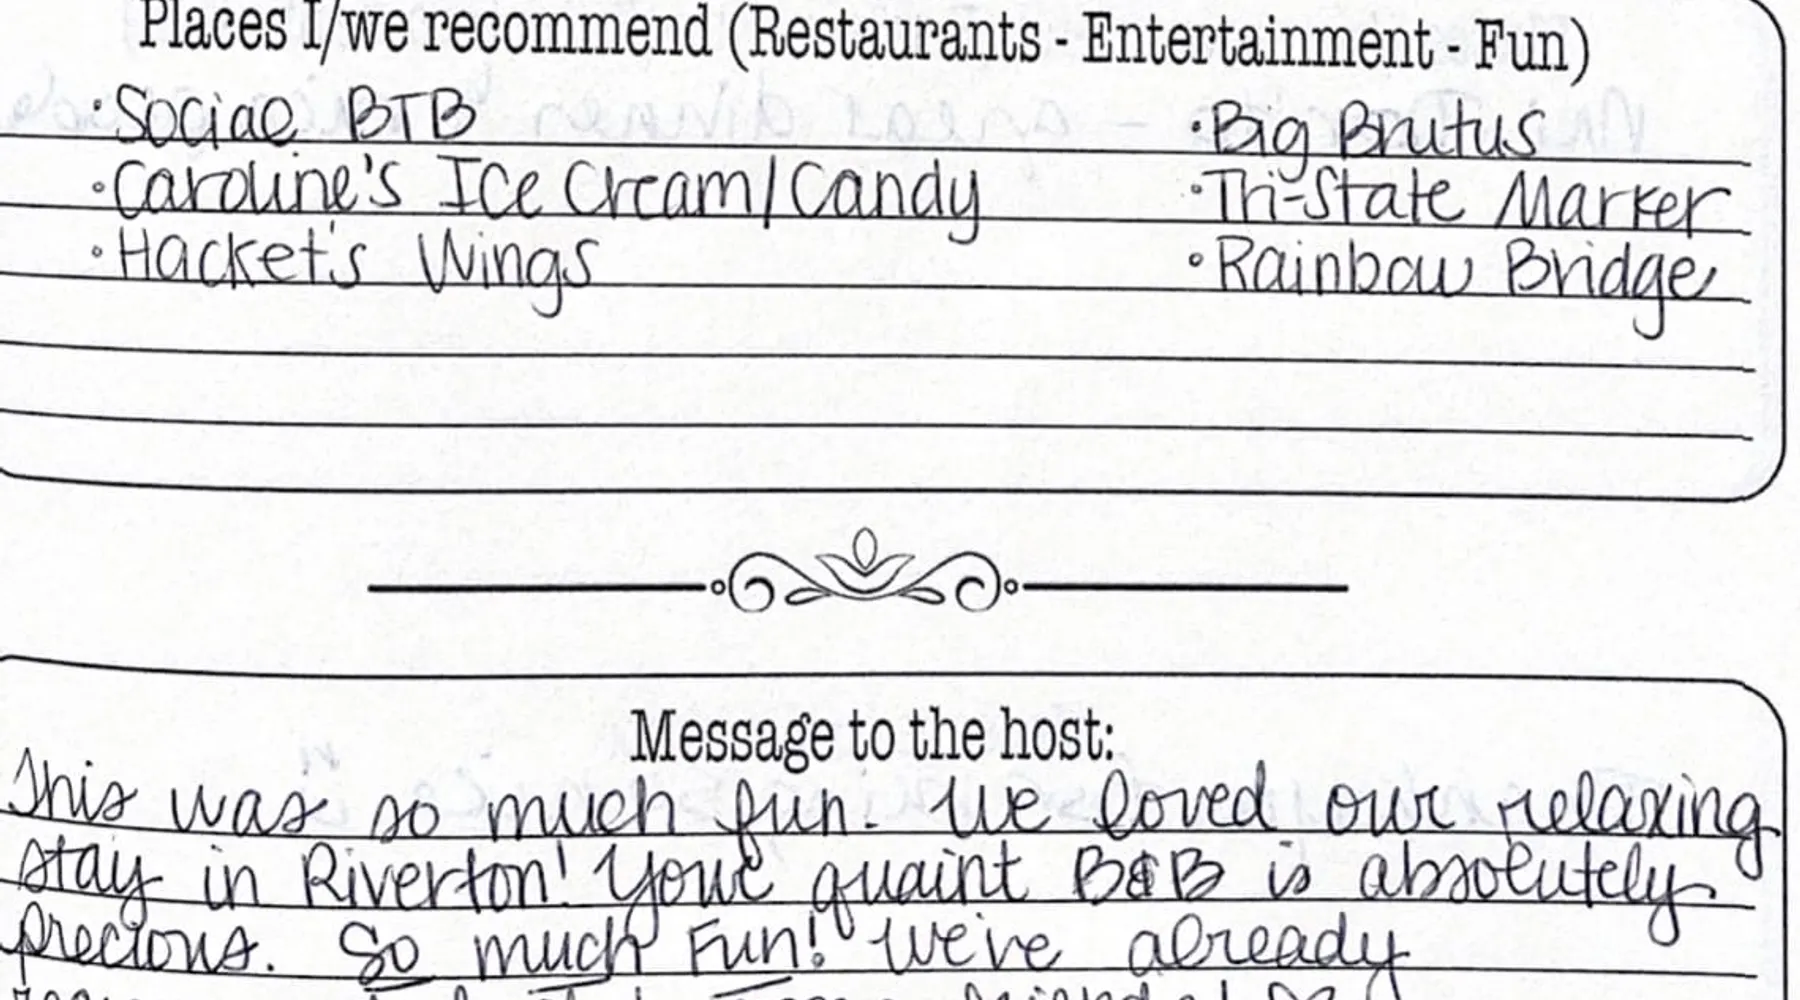 Places I/we recommend (Restaurants - Entertainment - Fun)
• Social BTB
• Big Brutus
• Caroline's Ice Cream/Candy
• Tri-State Marker
• Hacket's Wings
• Rainbow Bridge
Message to the host:
This was so much fun. We loved our relaxing
stay in Riverton! Your quaint B&B is absolutely
precious. So much Fun! We've already